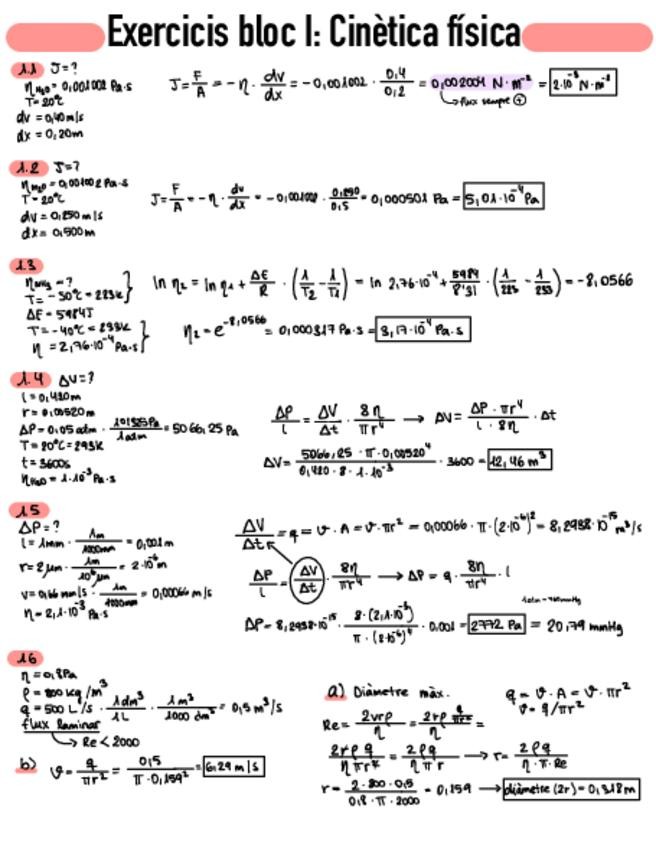 Exercicis bloc I: Cinètica física
1.1 J=?
η H₂O = 0,001002 Pa·s
T= 20ºC
dv = 0,40 m/s
dx = 0,20m
J = F/A = -η · dv/dx = -0,001002 · 0,4/0,2 = 0,002004 N·m⁻² = 2·10⁻³ N·m⁻²
flux sempre ⊕
1.2 J=?
η H₂O = 0,001002 Pa·s
T= 20ºC
dv = 0,250 m/s
dx = 0,500 m
J = F/A = -η · dv/dx = -0,001002 · 0,250/0,5 = 0,000501 Pa = 5,01·10⁻⁴ Pa
1.3
= ?
T= -50ºC = 223K
ΔE = 5984J
T= -40ºC = 233K
η = 2,76·10⁻⁴ Pa·s
ln η₂ = ln η₁ + ΔE/R · (1/T₂ - 1/T₁) = ln 2,76·10⁻⁴ + 5984/8'31 · (1/223 - 1/233) = -8,0566
η₂ = e^-8,0566 = 0,000317 Pa·s = 3,17·10⁻⁴ Pa·s
1.4 ΔV=?
l = 0,420m
r = 0,00520m
ΔP = 0,05 atm · 101325Pa/1atm = 5066,25 Pa
T = 20ºC = 293K
t = 3600s
η H₂O = 1·10⁻³ Pa·s
ΔP/l = ΔV/Δt · 8η/πr⁴ → ΔV = ΔP·πr⁴/l·8η · Δt
ΔV = 5066,25 · π · 0,00520⁴/0,420 · 8 · 1·10⁻³ · 3600 = 12,46 m³
1.5
ΔP = ?
l = 1mm · 1m/1000mm = 0,001m
r = 2μm · 1m/10⁶μm = 2·10⁻⁶m
v = 0,66 mm/s · 1m/1000mm = 0,00066 m/s
η = 2,1·10⁻³ Pa·s
ΔV/Δt = q = v·A = v·πr² = 0,00066 · π · (2·10⁻⁶)² = 8,2938·10⁻¹⁵ m³/s
ΔP/l = ΔV/Δt · 8η/πr⁴ → ΔP = q · 8η/πr⁴ · l
1atm - 760mmHg
ΔP = 8,2938·10⁻¹⁵ · 8·(2,1·10⁻³)/π·(2·10⁻⁶)⁴ · 0.001 = 2772 Pa = 20,79 mmHg
1.6
η = 0,8Pa
ρ = 800 kg/m³
q = 500 L/s · 1dm³/1L · 1m³/1000 dm³ = 0,5 m³/s
flux laminar
→ Re < 2000
b) v = q/πr² = 0,5/π·0,159² = 6,29 m/s
a) Diàmetre màx.
q = v·A = v·πr²
v = q/πr²
Re = 2vrρ/η = 2rρ q/πr²/η =
2rρq/ηπr² = 2ρq/ηπr → r = 2ρq/η·π·Re
r = 2·800·0,5/0,8·π·2000 = 0,159 → diàmetre (2r) = 0,318m